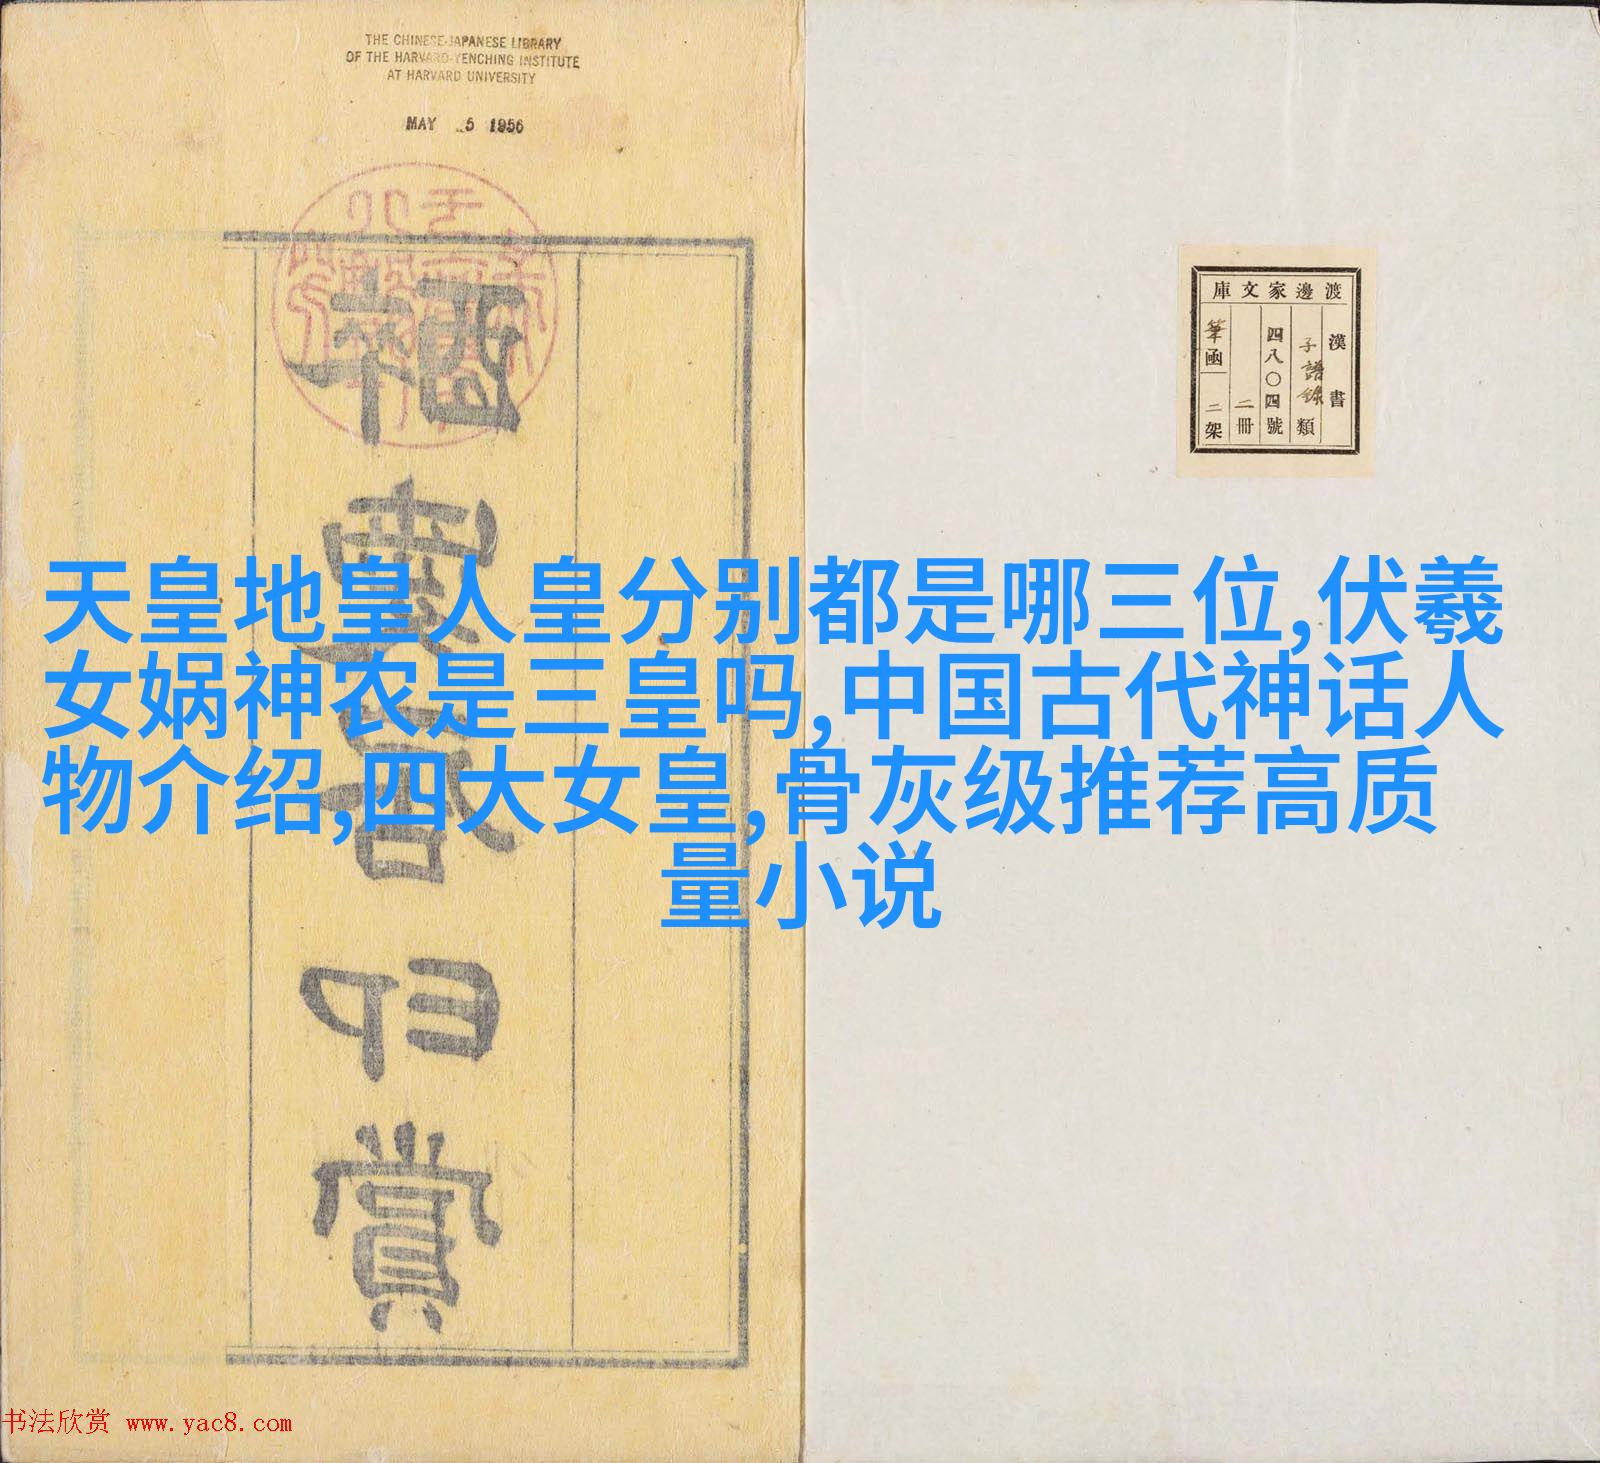 THE CHINESE-JAPANESE LIBRARY
OF THE HARVARD-YENCHING INSTITUTE
AT HARVARD UNIVERSITY
MAY 5 1956
渡邊家文庫
漢書
子譜錄類
四八〇四號
二冊
筆函
二架
天皇地皇人皇分别都是哪三位,伏羲
女娲神农是三皇吗,中国古代神话人
物介绍,四大女皇,骨灰级推荐高质
量小说
书法欣赏 www.yac8.com